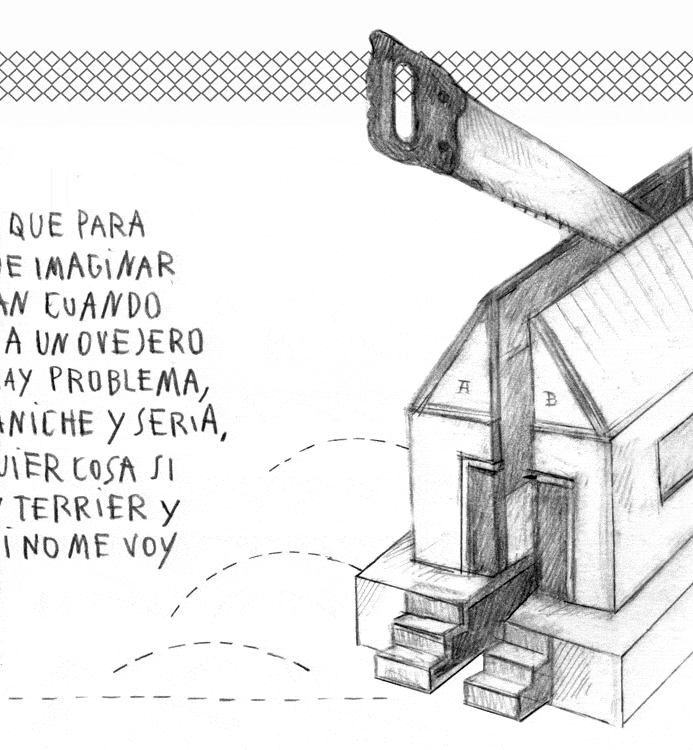 QUE PARA
E IMAGINAR
AN CUANDO
A UN OVEJERO
AY PROBLEMA,
ANICHE Y SERIA,
UIER COSA SI
Y TERRIER Y
I NO ME VOY
A
B